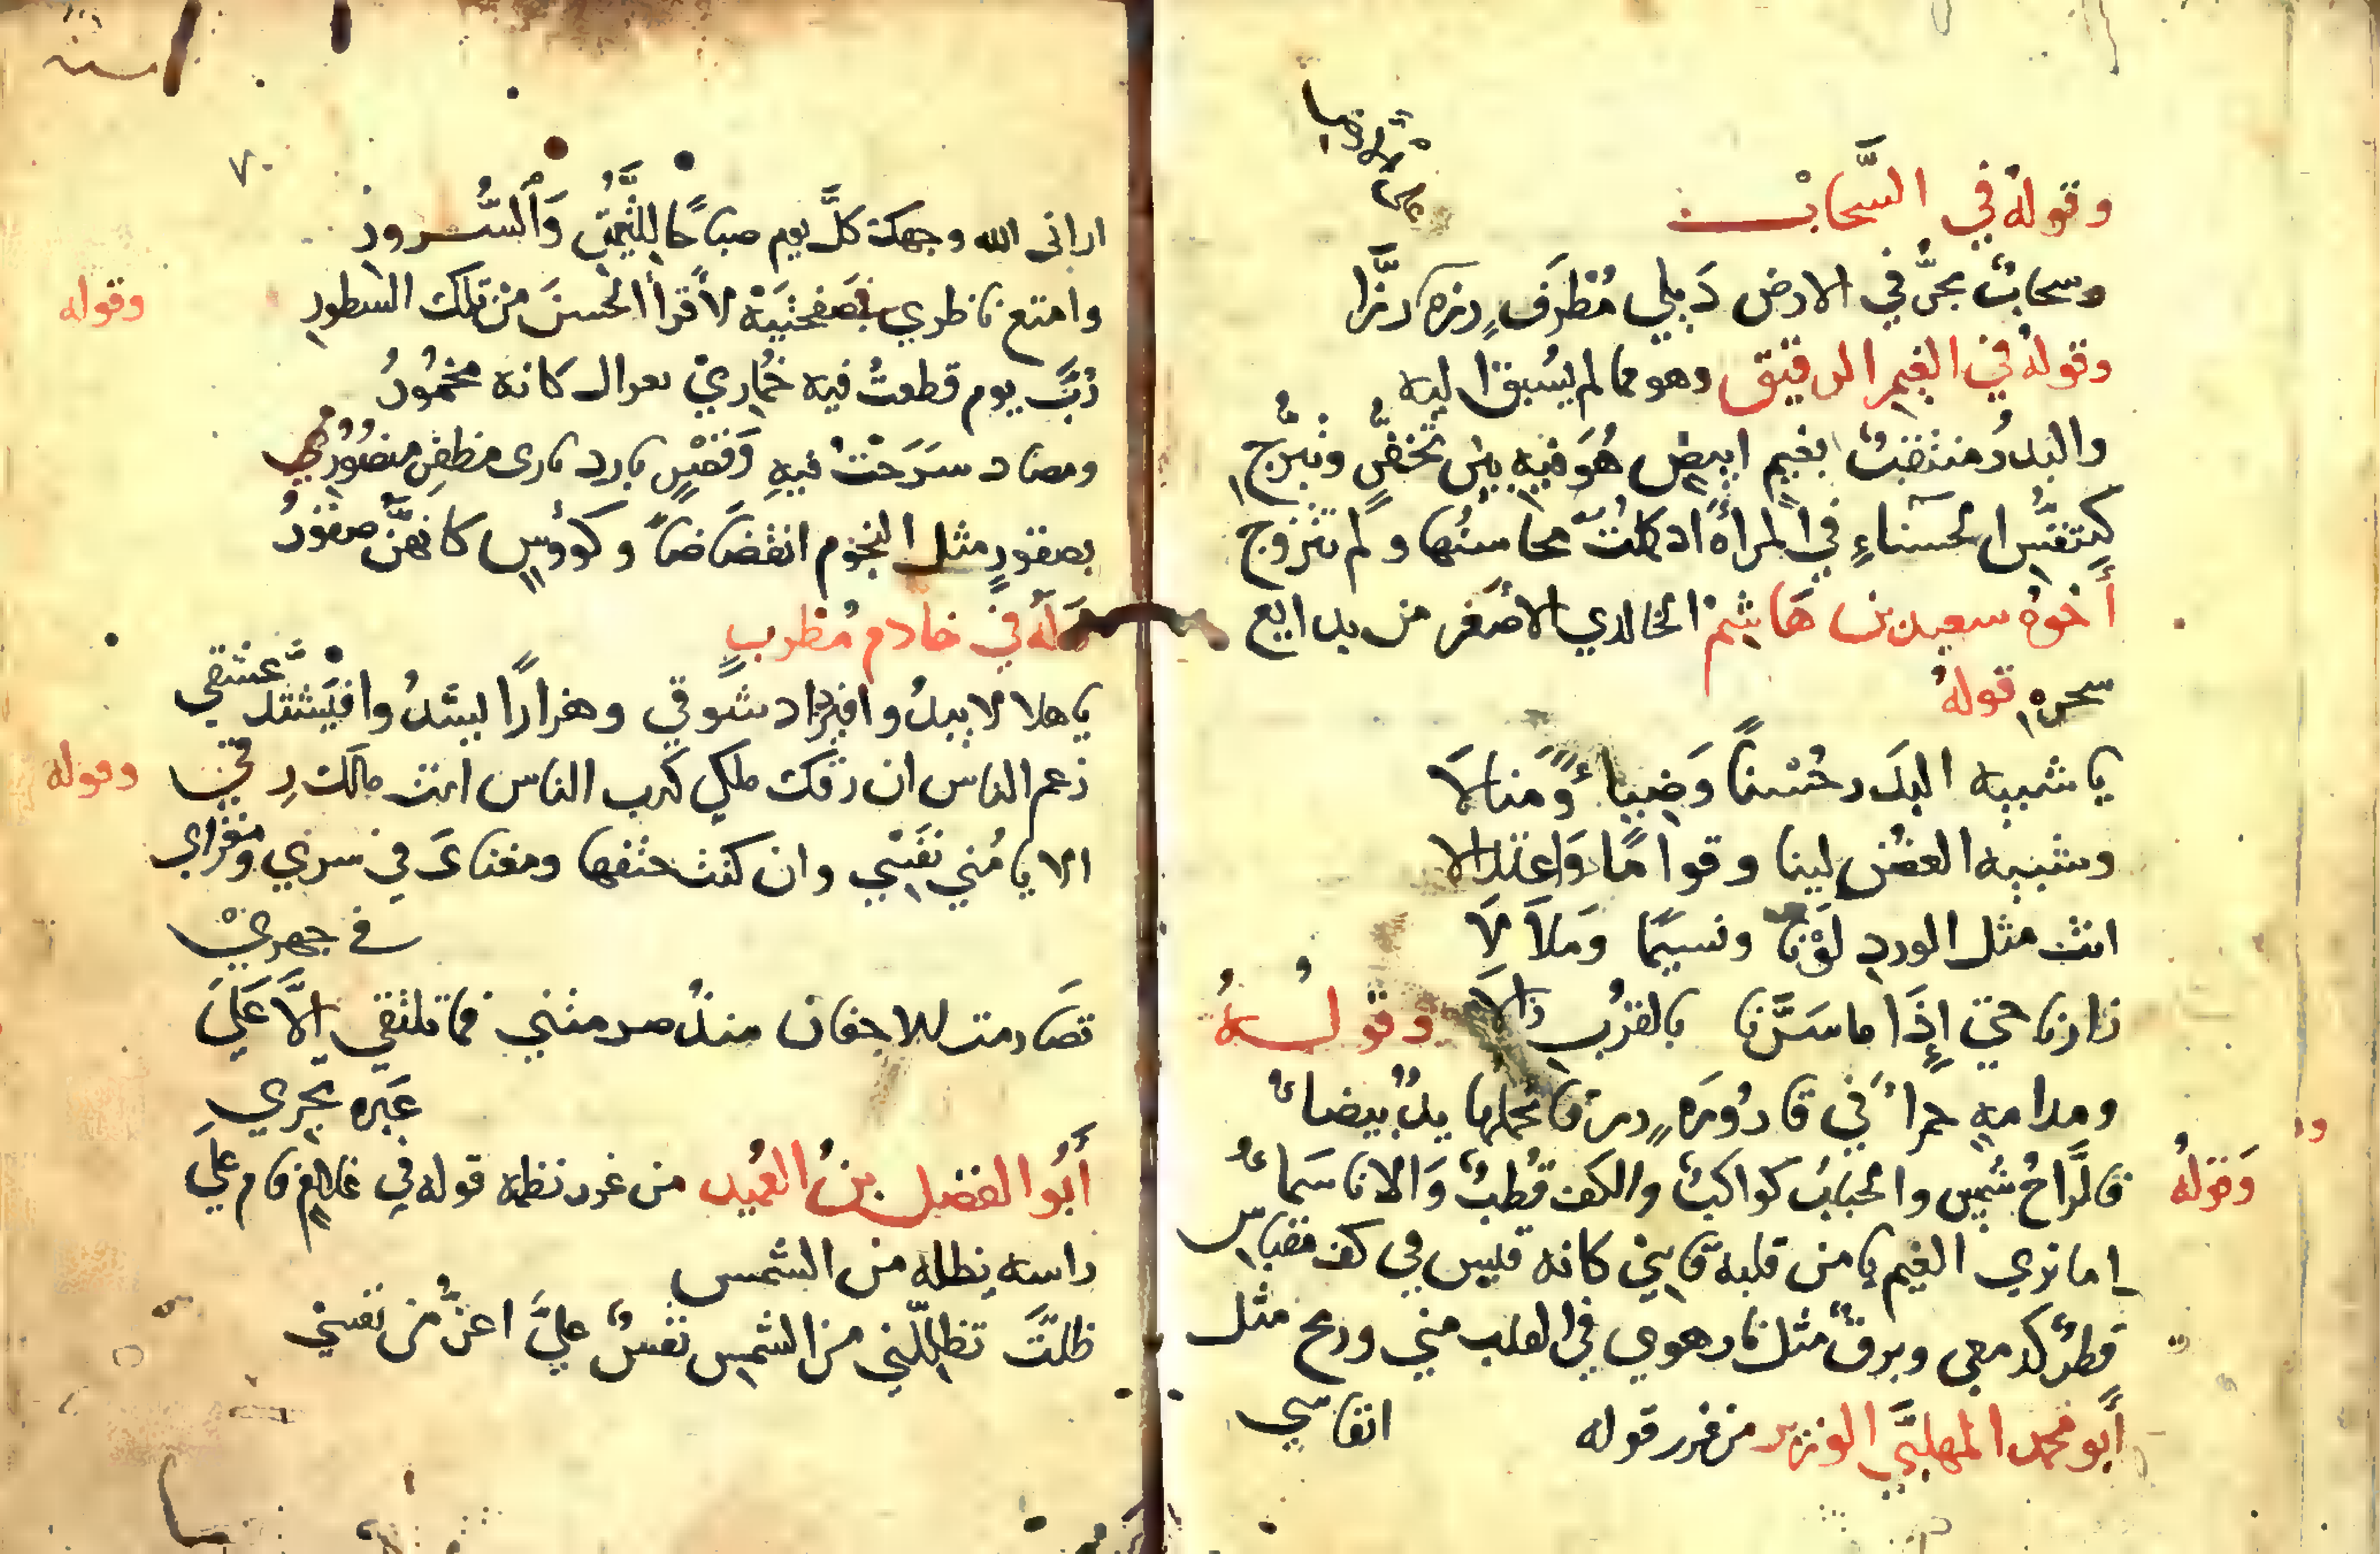 وقوله في السَّحاب
على الارض
وسحابٌ يجرُّ في الارض ذيلي مُطرَفٍ زره زرًّا
وقولهُ في الغيم الرقيق وهو مما لم يُسبق اليه
والبدرُ منتقبٌ بغيم ابيض هُوَ فيه بين تخفّرٍ وتبرّج
كتنفّس الحسناءِ في المرآة اذ كملت محاسنُها ولم تتزوج
أخوهُ سعيد بن هَاشم الخالدي الاصغر من بدايع
سحره قولهُ
يا شبيه البَدر حُسْنًا وَضياءً وَمنالَا
وشبيه الغصن لينا وقوامًا وَاعتدالا
انت مثل الورد لَوْنا ونسيمًا وَملاَلَا
زارنا حتى إِذَا ما سَرَّنا بالقرُب زالا وقولُـــهُ
ومدامهٍ حمراءَ في قارُورَهٍ زرقا تحملها يدٌ بيضاءُ
فالرَّاحُ شمس والحبابُ كواكبٌ والكف قُطبٌ وَالانا سَماءُ
وَقولهُ
إما تري الغيم يا من قلبه قاسٍ كانه قلبس في كف مقباس
قطرٌ كدمعي وبرقٌ مثل نار هوي في القلب مني وريح مثل
انفاسي
أبو محمد المهلبَّي الوزير من غرر قوله
٧٠
اراني الله وجهك كلَّ يوم صباحًا للتيمّن وَالسُّــرور
وامتع ناظري بصَفحتيَهْ لأقرأ الحسنَ من تلك السطورِ
وقوله
رُبَّ يوم قطعتُ فيه خُماريْ بغزال كانه مخمُورُ
ومصاد سَرَحْتُ فيهِ
بصقورٍ مثل النجوم انقضَاضاً وكؤوسٍ كانهنَّ صقورُ
وَلَه في خادم مُطربٍ
يا هلالا يبدُ وافيزداد شوقي وهزارًا يشدُ وافيَشتدَ عَشقي
زعم الناس ان رقك ملكي كذب الناس انت مالك رِقّي
وقوله
الا يا مُني نَفَسْي وان كنت حتفها ومغنايَ في سري ومغزاي
في جهريْ
تصَارمت الاجفان منذُ صرمتني فما تلتقي إلَّا عَلي
عَبره تجري
أَبُو الفضل بنُ العُميد من غرر نظمه قوله في غلام قام علي
راسه يظله من الشمس
ظلتَّ تظللّني من الشمس نفسٌ عليَّ اعزُّ من نفسيْ